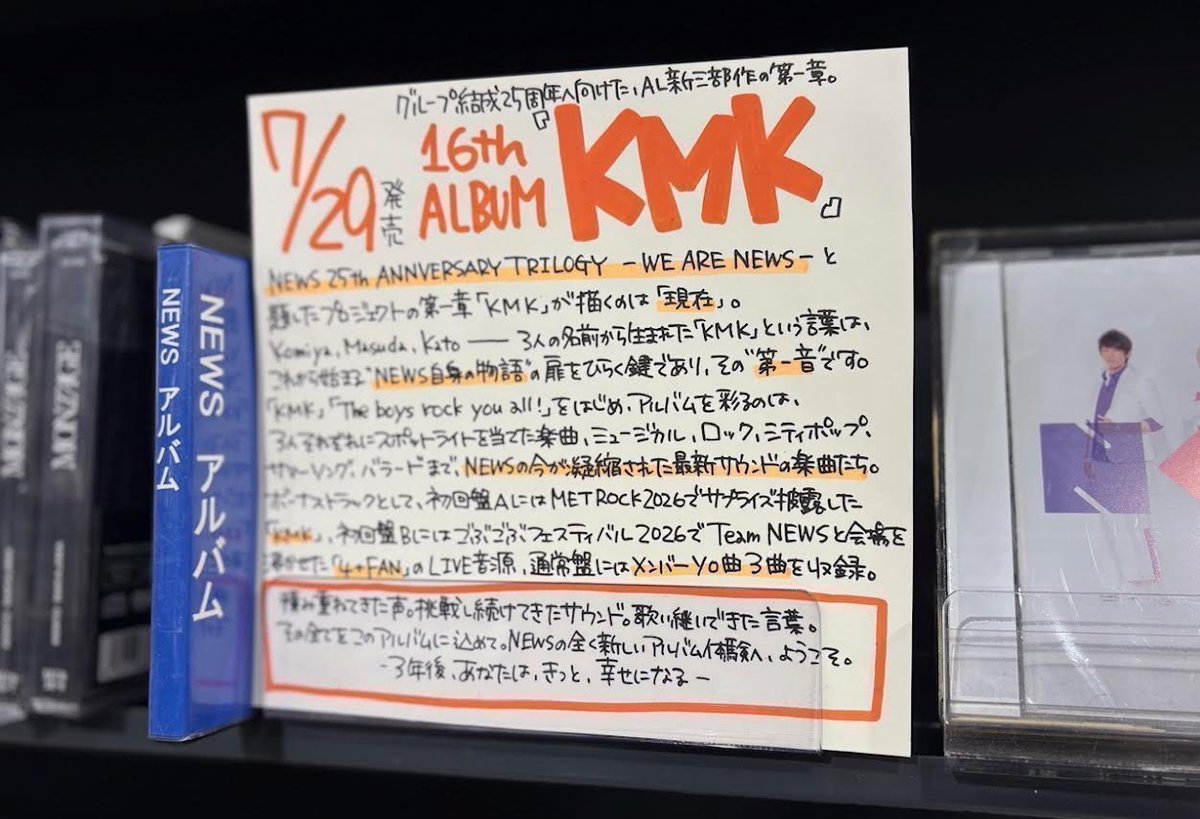 グループ結成25周年へ向けた、AL新三部作の第一章。
7/29
発売
16th
ALBUM
『KMK』
NEWS 25th ANNVERSARY TRILOGY -WE ARE NEWS- と
題したプロジェクトの第一章「KMK」が描くのは「現在」。
Komiya, Masuda, Kato —— 3人の名前から生まれた「KMK」という言葉は、
これから始まる"NEWS自身の物語"の扉をひらく鍵であり、その"第一音"です。
「KMK」「The boys rock you all!」をはじめ、アルバムを彩るのは、
3人それぞれにスポットライトを当てた楽曲、ミュージカル、ロック、シティポップ、
サマーソング、バラードまで、NEWSの今が凝縮された最新サウンドの楽曲たち。
ボーナストラックとして、初回盤AにはMETROCK2026でサプライズ披露した
「KMK」、初回盤Bにはごぶごぶフェスティバル2026でTeam NEWSと会場を
沸かせた「4+FAN」のLIVE音源、通常盤にはメンバーソロ曲3曲を収録。
積み重ねてきた声。挑戦し続けてきたサウンド。歌い継いできた言葉。
その全てをこのアルバムに込めて。NEWSの全く新しいアルバム体験へ、ようこそ。
-3年後、あなたは、きっと、幸せになる-
NEWS アルバム
NEWS アルバム